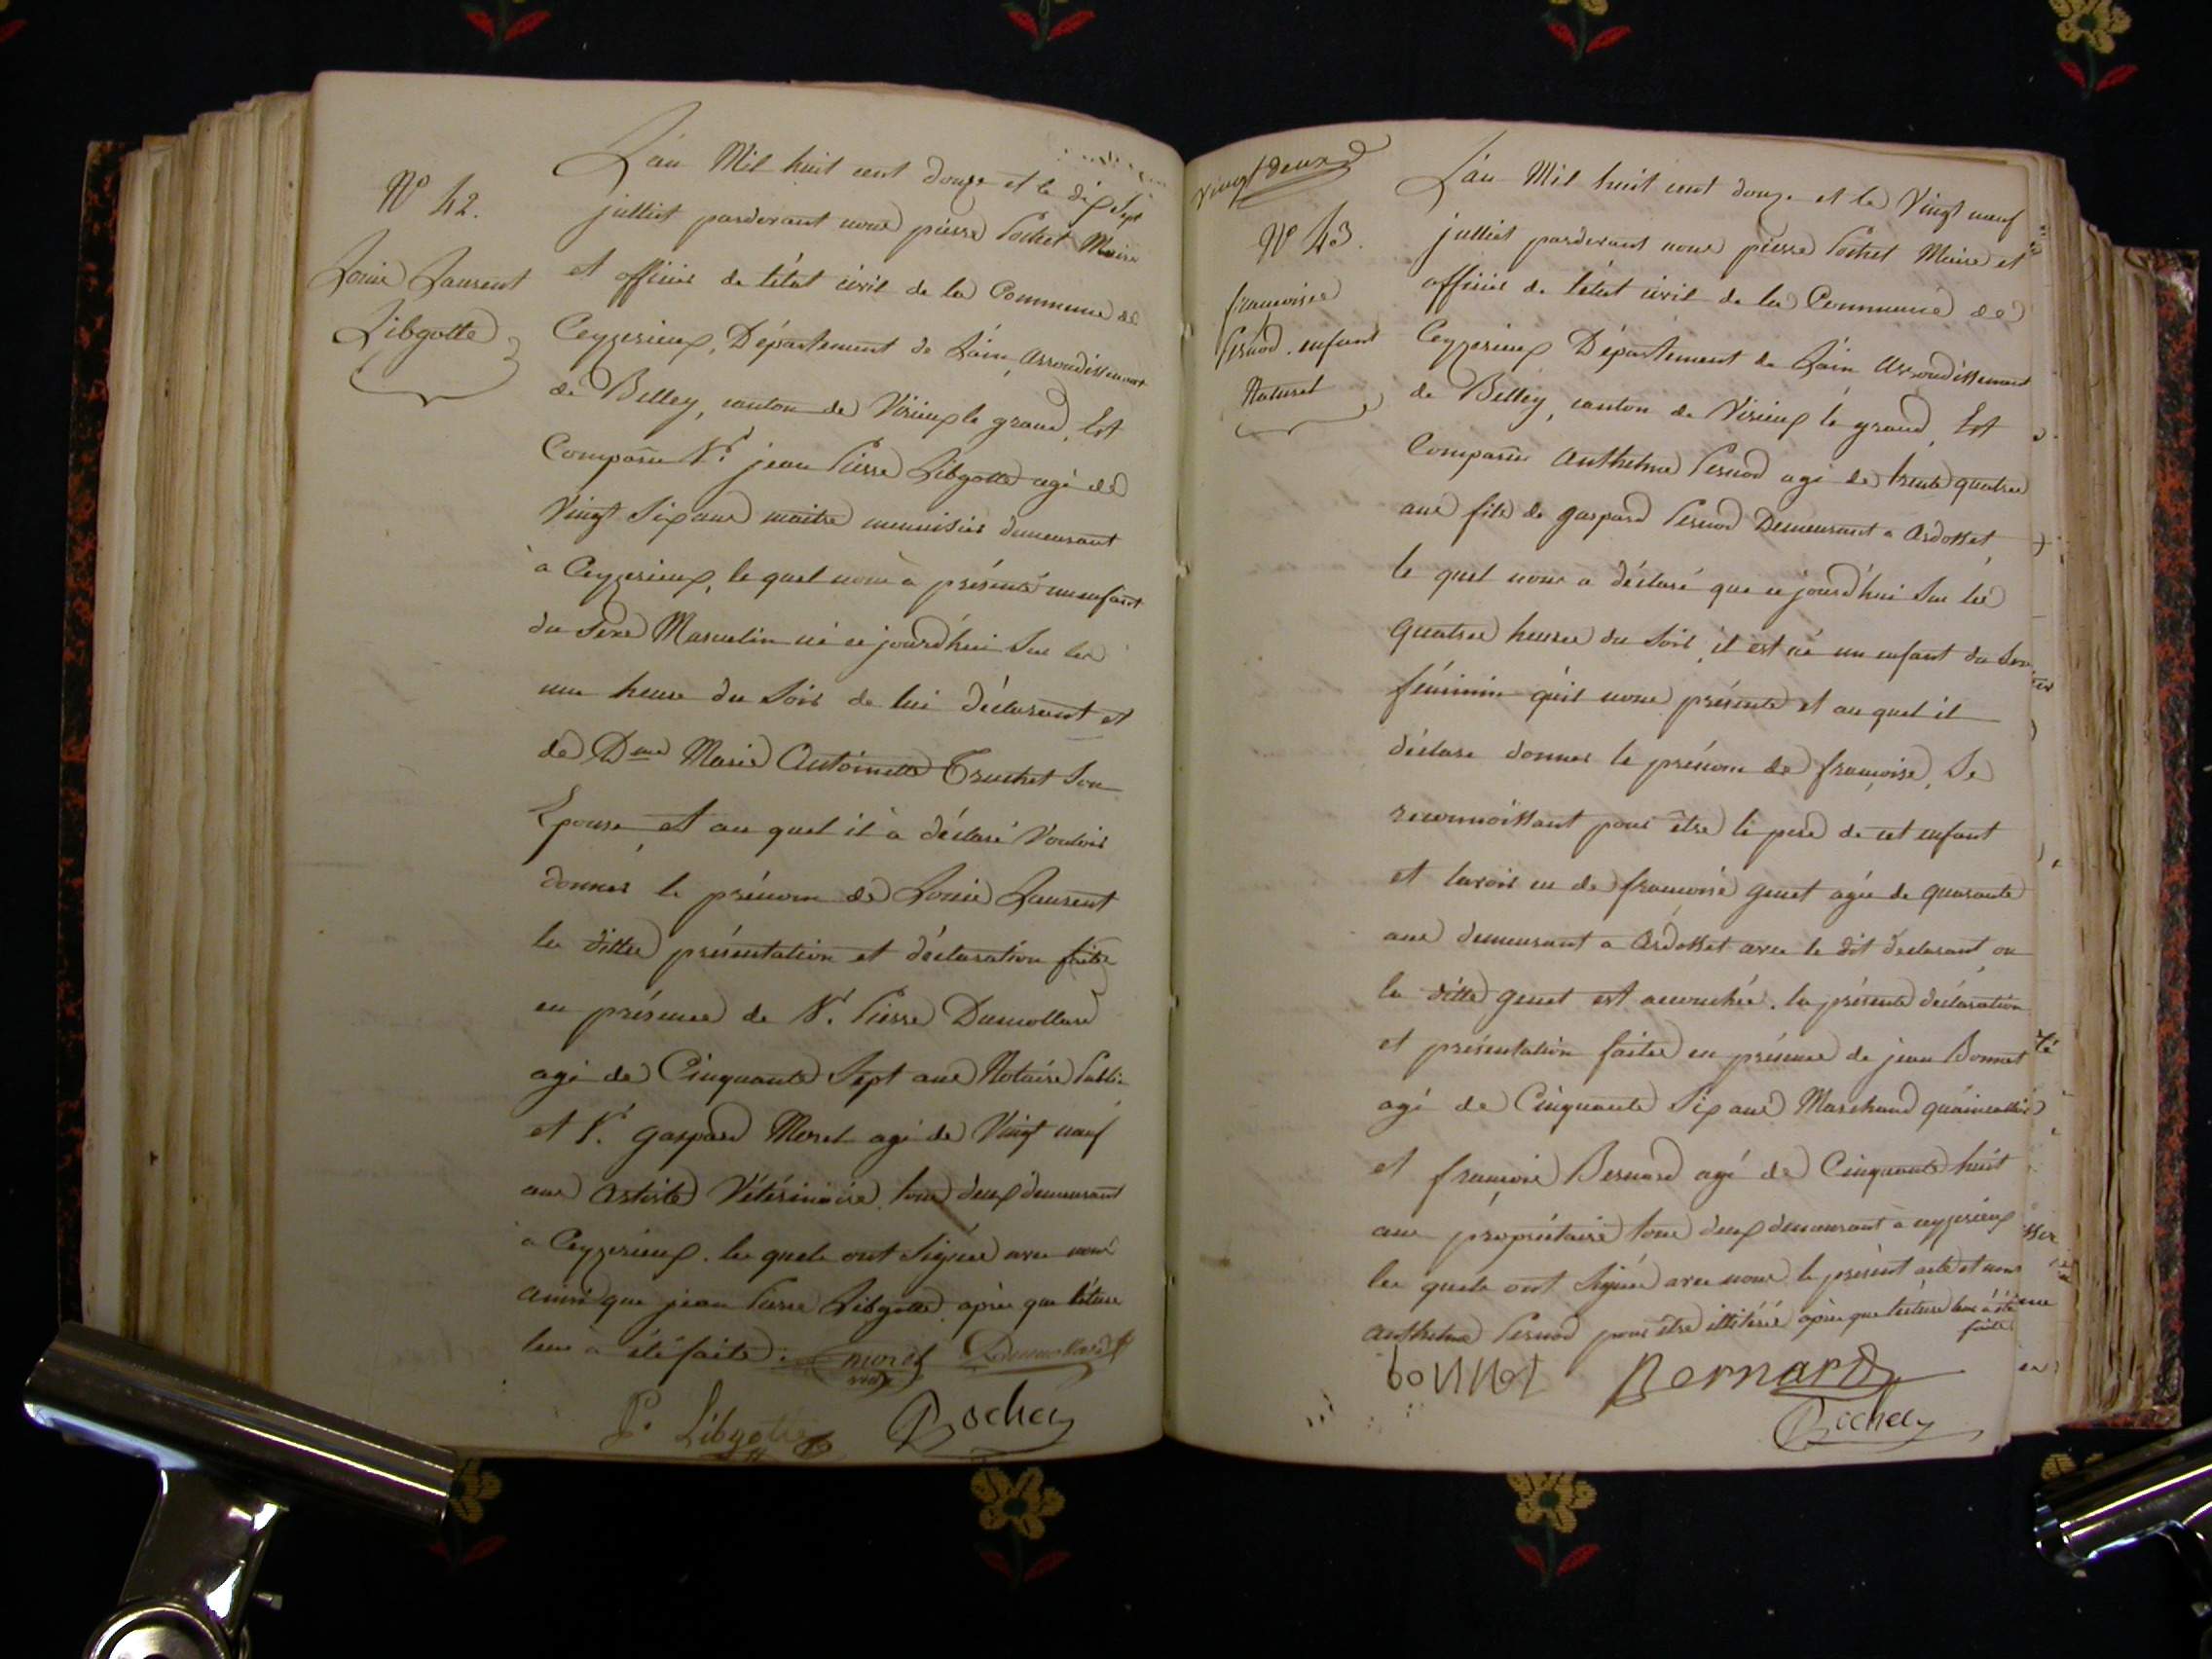 N° 42.
Louis Laurent
Libgotte
L'an Mil huit cent douze et le dix sept
julliet pardevant nous pierre Pochet Maire
et officier de l'état civil de la Commune de
Ceyzerieux, Département de L'ain, Arrondissement
de Belley, canton de Virieux le grand, Est
Comparu Sr. jean Pierre Libgotte agé de
Vingt Six ans maitre menuisier demeurant
à Ceyzerieux, le quel nous a présenté un enfant
du Sexe Masculin né ce jourd'hui Sur les
une heure du Soir de lui déclarant et
de Dme Marie Antoinette Truchet Son
Epouse, et au quel il a déclaré Vouloir
donner le prénom de Louis Laurent
les dittes présentation et déclaration faites
en présence de Sr. Pierre Dumollard
agé de Cinquante Sept ans Notaire Public
et Sr. gaspard Morel agé de Vingt neuf
ans Artiste Vétérinaire, tous deux demeurant
à Ceyzerieux. les quels ont Signés avec nous
ainsi que jean Pierre Libgotte, après que lecture
leur a été faite.
morel Dumollard
P. Libgotte Pochet
Vingt deux
N° 43.
francoise
Pernod. enfant
Naturel
L'an Mil huit cent douze et le Vingt neuf
julliet pardevant nous pierre Pochet Maire et
officier de l'état civil de la Commune de
Ceyzerieux Département de L'ain Arrondissement
de Belley, canton de Virieux le grand, Est
Comparu Anthelme Pernod agé de trente quatre
ans fils de gaspard Pernod Demeurant a Ardosset,
le quel nous a déclaré que ce jourd'hui Sur les
quatres heures du Soir, il est né un enfant du Sexe
féminin qu'il nous présente et au quel il
déclare donner le prénom de françoise, Se
reconnoissant pour être le pere de cet enfant
et l'avoir eu de francoise genet agée de quarante
ans demeurant a Ardosset avec le dit declarant ou
la ditte genet est accouchée. la présente déclaration
et présentation faites en présence de jean Bonnet
agé de Cinquante Six ans Marchand quaincallier
et françois Bernard agé de Cinquante huit
ans propriétaire tous deux demeurant à ceyzerieux
les quels ont Signés avec nous le présent acte et non
Anthelme Pernod pour être illitéré après que lecture leur a été
faite
bonnet Bernard
Pochet